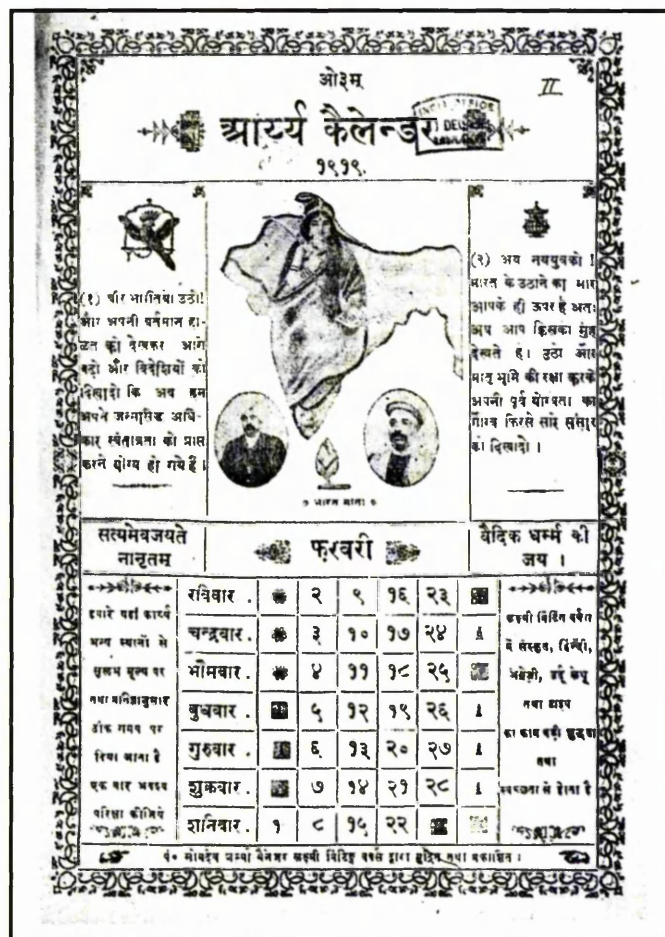 ओ३म्
II
आर्य्य कैलेन्डर
INDIA OFFICE
१९१९.
(१) वीर भारतियो उठो!
और अपनी वर्तमान हा-
लत को देखकर आगे
बढ़ो और विदेशियों को
दिखादो कि अब हम
अपने जन्मसिद्ध अधि-
कार स्वतंत्रता को प्राप्त
करने योग्य हो गये हैं।
(२) अय नवयुवको !
भारत के उठाने का भार
आपके ही ऊपर है अतः
अब आप किसका मुंह
देखते हैं। उठो और
मातृ भूमि की रक्षा करके
अपनी पूर्व योग्यता का
गौरव फिरसे सारे संसार
को दिखादो ।
भारत माता
सत्यमेवजयते
नानृतम्
फरवरी
वैदिक धर्म्म की
जय ।
हमारे यहाँ कार्य्य
अन्य स्थानों से
सुलभ मूल्य पर
तथा
ठीक समय पर
किया जाता है
एक बार अवश्य
परिक्षा कीजिये
रविवार . २ ९ १६ २३
चन्द्रवार . ३ १० १७ २४
भौमवार . ४ ११ १८ २५
बुधवार . ५ १२ १९ २६
गुरुवार . ६ १३ २० २७
शुक्रवार . ७ १४ २१ २८
शनिवार . १ ८ १५ २२
लक्ष्मी प्रिंटिंग वर्क्स
में संस्कृत, हिन्दी,
अंग्रेज़ी, उर्दू
तथा टाइप
का काम बड़ी शुद्धता
तथा
स्वच्छता से होता है
पं० शर्म्मा मैनेजर लक्ष्मी प्रिंटिङ्ग वर्क्स द्वारा मुद्रित तथा प्रकाशित ।